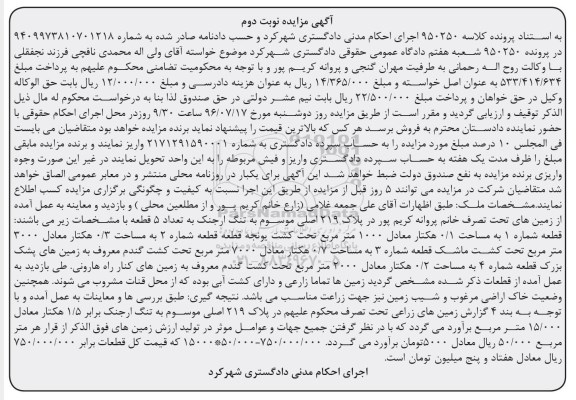 آگهی مزایده نوبت دوم
به استناد پرونده کلاسه ۹۵۰۲۵۰ اجرای احکام مدنی دادگستری شهرکرد و حسب دادنامه صادر شده به شماره ۹۴۰۹۹۷۳۸۱۰۷۰۱۲۱۸
در پرونده ۹۵۰۲۵۰ شعبه هفتم دادگاه عمومی حقوقی دادگستری شهرکرد موضوع خواسته آقای ولی اله محمدی نافچی فرزند نجفقلی
با وکالت روح اله رحمانی به طرفیت مهران گنجی و پروانه کریم پور و با توجه به محکومیت تضامنی محکوم علیهم به پرداخت مبلغ
۵۳۳/۴۱۴/۶۳۴ به عنوان اصل خواسته و مبلغ ۱۴/۳۶۵/۰۰۰ ریال به عنوان هزینه دادرسی و مبلغ ۱۲/۰۰۰/۰۰۰ ریال بابت حق الوکاله
وکیل در حق خواهان و پرداخت مبلغ ۲۲/۵۰۰/۰۰۰ ریال بابت نیم عشر دولتی در حق صندوق لذا بنا به درخواست محکوم له مال ذیل
الذکر توقیف و ارزیابی گردید و مقرر است از طریق مزایده روز دوشنبه مورخ ۹۶/۰۷/۱۷ ساعت ۹/۳۰ روزدر محل اجرای احکام حقوقی با
حضور نماینده دادستان محترم به فروش برسد هر کس که بالاترین قیمت را پیشنهاد نماید برنده مزایده خواهد بود متقاضیان می بایست
فی المجلس ۱۰ درصد مبلغ مورد مزایده را به حساب سپرده دادگستری به شماره ۲۱۷۱۲۹۱۵۹۰۰۰۱ واریز نمایند و برنده مزایده مابقی
مبلغ را ظرف مدت یک هفته به حساب سپرده دادگستری واریز و فیش مربوطه را به این واحد تحویل نمایند در غیر این صورت وجوه
واریزی برنده مزایده به نفع صندوق دولت ضبط خواهد شد این آگهی برای یکبار در روزنامه محلی منتشر و در معابر عمومی الصاق خواهد
شد متقاضیان شرکت در مزایده می توانند ۵ روز قبل از مزایده از طریق این اجرا نسبت به کیفیت و چگونگی برگزاری مزایده کسب اطلاع
نمایند.مشخصات ملک: طبق اظهارات آقای علی جمعه غلامی (زارع خانم کریم پور و از مطلعین محلی ) و بازدید و معاینه به عمل آمده
از زمین های تحت تصرف خانم پروانه کریم پور در پلاک ۲۱۹ اصلی موسوم به تنگ ارجنک به تعداد ۵ قطعه با مشخصات زیر می باشند:
قطعه شماره ۱ به مساحت ۰/۱ هکتار معادل ۱۰۰۰ متر مربع تحت کشت یونجه قطعه شماره ۲ به مساحت ۰/۳ هکتار معادل ۳۰۰۰
متر مربع تحت کشت ماشک قطعه شماره ۳ به مساحت ۰/۷ هکتار معادل ۷۰۰۰ متر مربع تحت کشت گندم معروف به زمین های پشک
بزرگ قطعه شماره ۴ به مساحت ۰/۲ هکتار معادل ۲۰۰۰ متر مربع تحت کشت گندم معروف به زمین های کنار راه هارونی. طی بازدید به
عمل آمده از قطعات ذکر شده مشخص گردید زمین ها تماما زارعی و دارای کشت آبی بوده که از محل قنات مشروب می شوند. همچنین
وضعیت خاک اراضی مرغوب و شیب زمین نیز جهت زراعت مناسب می باشد. نتیجه گیری: طبق بررسی ها و معاینات به عمل آمده و با
توجه به بند ۴ گزارش زمین های زراعی تحت تصرف محکوم علیهم در پلاک ۲۱۹ اصلی موسوم به تنگ ارجنک برابر ۱/۵ هکتار معادل
۱۵/۰۰۰ متر مربع برآورد می گردد که با در نظر گرفتن جمیع جهات و عوامل موثر در تولید ارزش زمین های فوق الذکر از قرار هر متر
مربع ۵۰/۰۰۰ ریال معادل ۵۰۰۰تومان برآورد می گردد. ۷۵۰/۰۰۰/۰۰۰=۵۰/۰۰۰*۱۵۰۰۰ که قیمت کل قطعات برابر ۷۵۰/۰۰۰/۰۰۰
ریال معادل هفتاد و پنج میلیون تومان است.
اجرای احکام مدنی دادگستری شهرکرد